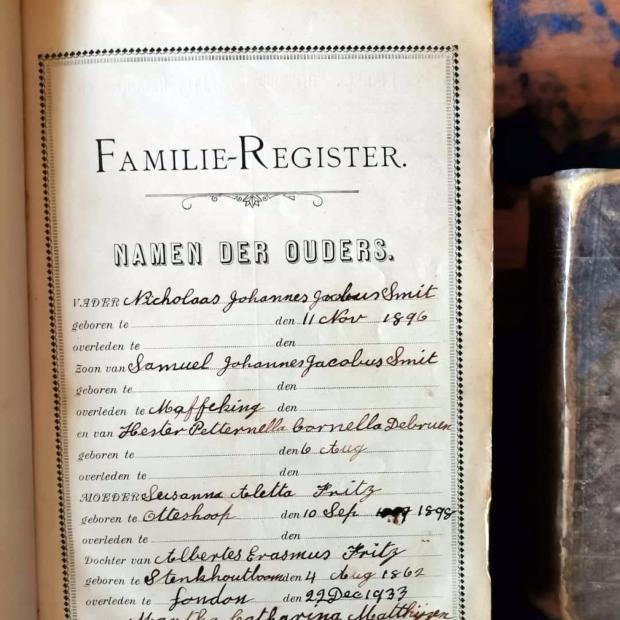 FAMILIE-REGISTER.
NAMEN DER OUDERS.
VADER Nicholaas Johannes Jacobus Smit
geboren te den 11 Nov 1896
overleden te den
Zoon van Samuel Johannes Jacobus Smit
geboren te den
overleden te Maffeking den
en van Hester Petternella Cornella Debruen
geboren te den 6 Aug
overleden te den
MOEDER Susanna Aletta Fritz
geboren te Otteshoop den 10 Sep 1898
overleden te den
Dochter van Albertes Erasmus Fritz
geboren te Stenkhoutboom den 4 Aug 1862
overleden te London den 22 Dec 1933
Martha Catharina Matthijzen